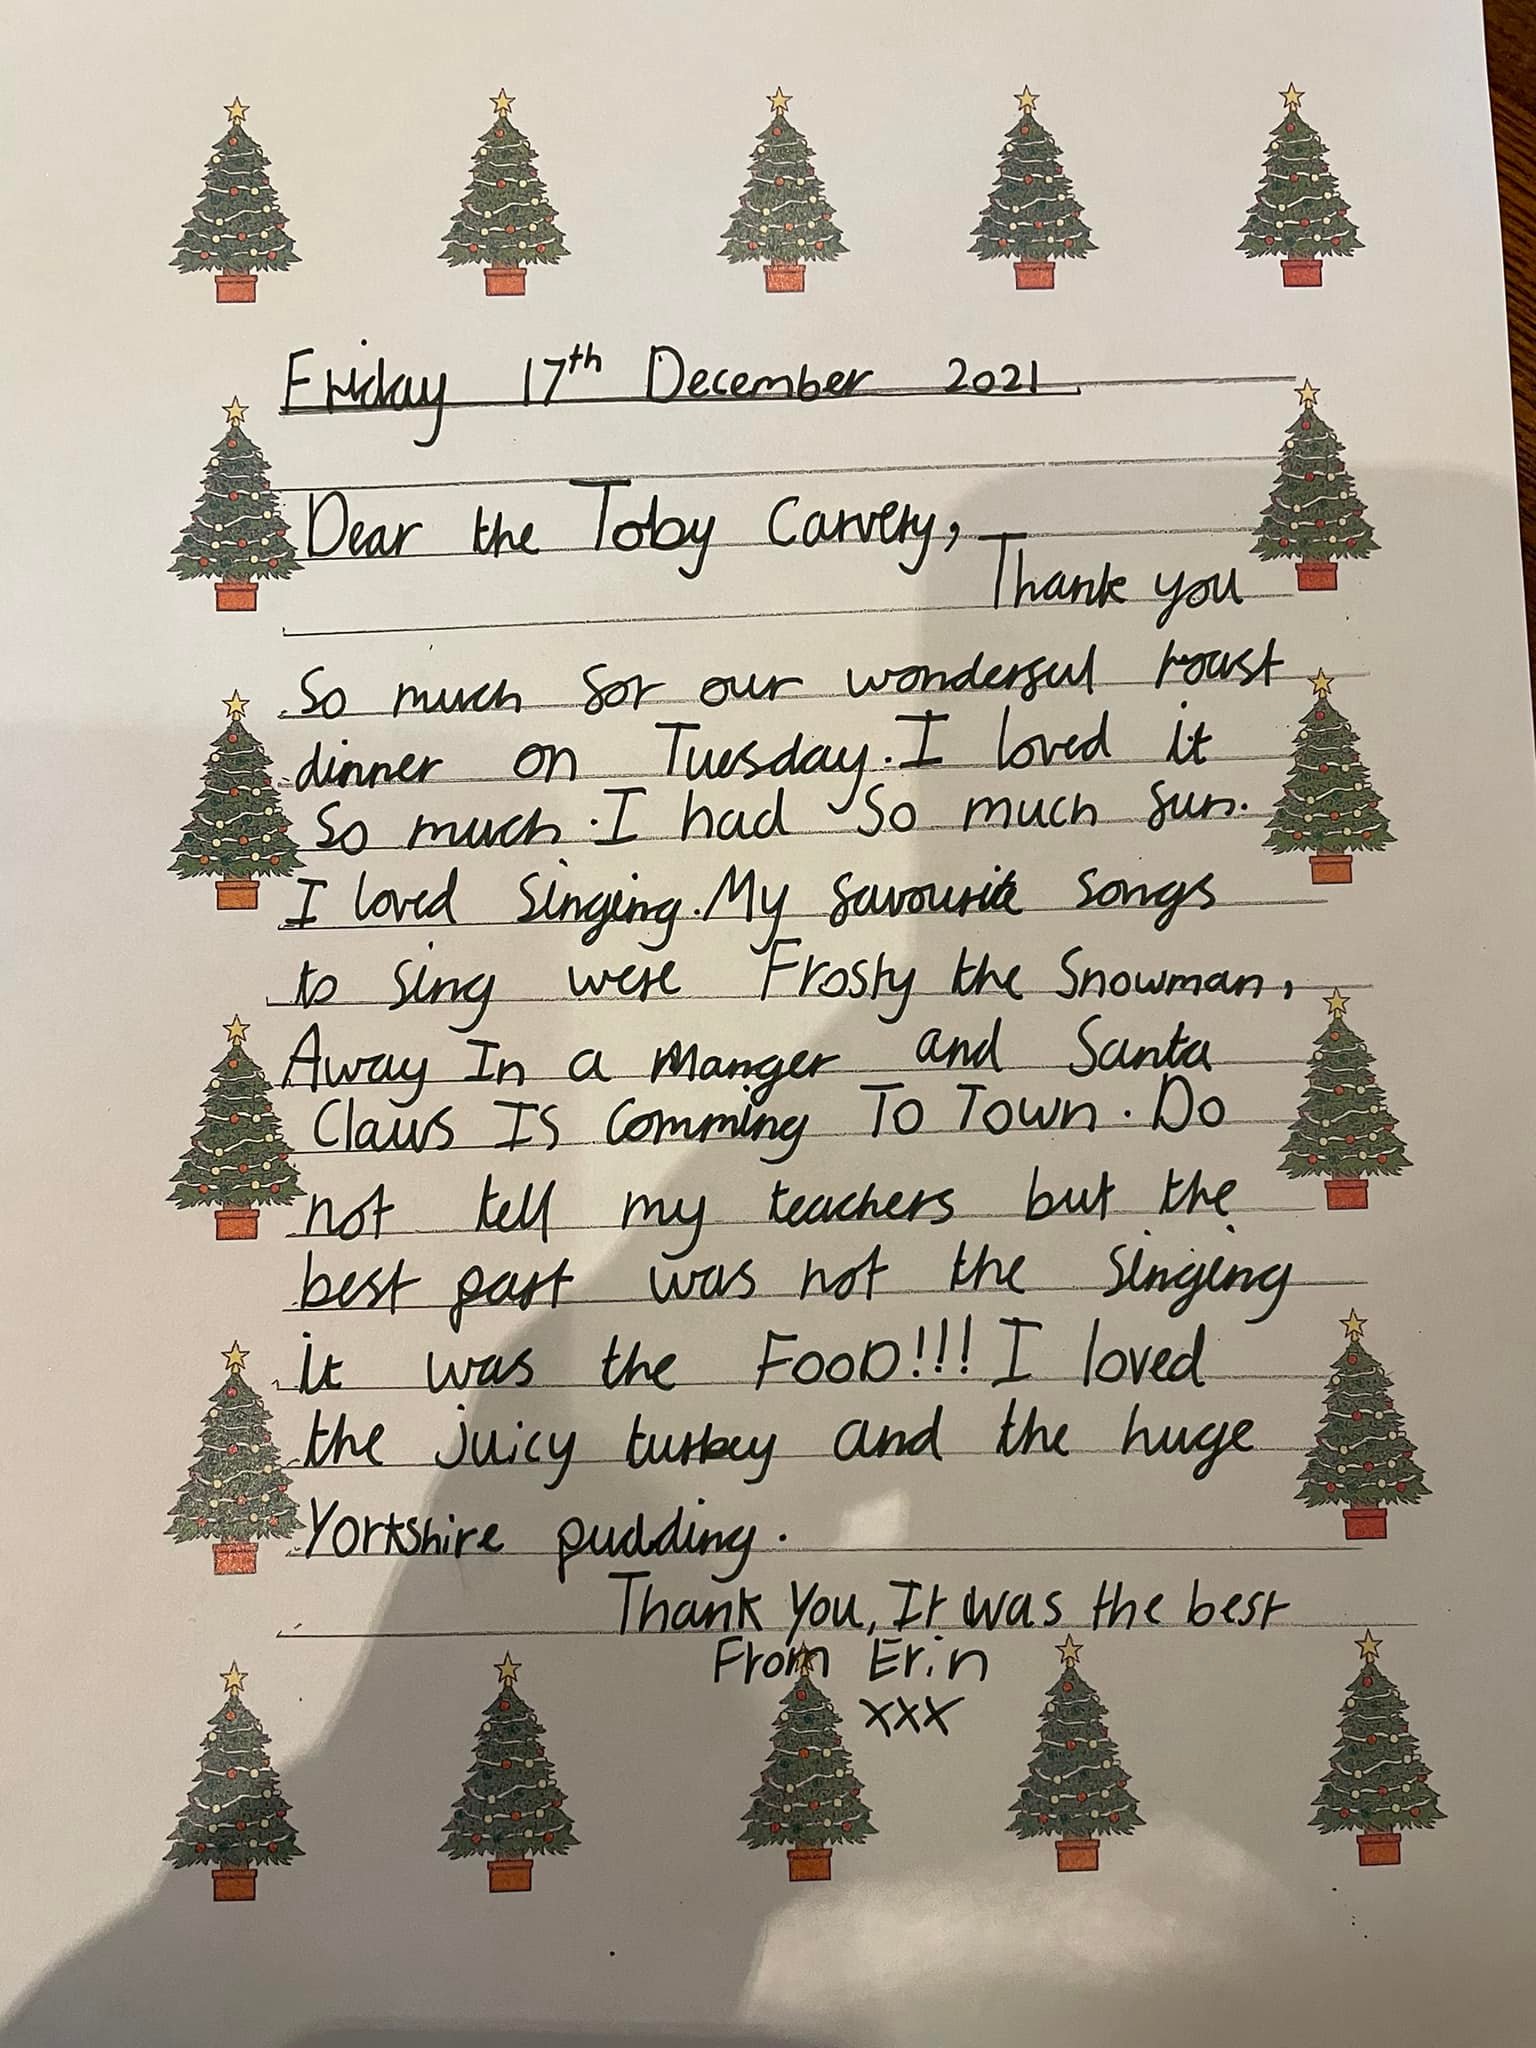 Friday 17th December 2021
Dear the Toby Carvery,
Thank you
so much for our wonderful roast
dinner on Tuesday. I loved it
so much. I had so much fun.
I loved singing. My favourite songs
to sing were Frosty the Snowman,
Away In a Manger and Santa
Claus Is Comming To Town. Do
not tell my teachers but the
best part was not the singing
it was the FOOD!!! I loved
the juicy turkey and the huge
Yorkshire pudding.
Thank You, It was the best
From Erin
xxx